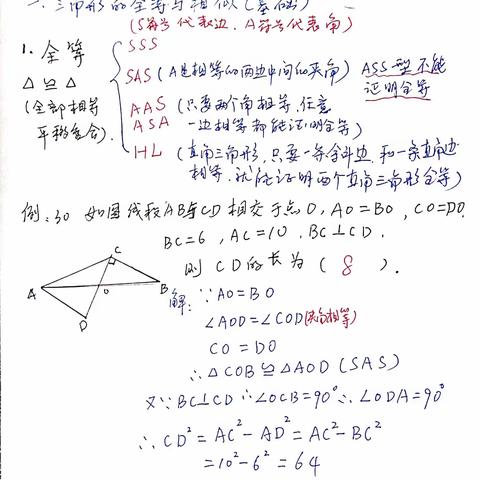 一. 三角形的全等与相似(基础)
(S符号代表边, A符号代表角)
1. 全等
△≌△
(全部相等
平移重合).
SSS
SAS (A是相等的两边中间的夹角) ASS型不能
证明全等
AAS (只要两个角相等, 任意
ASA 一边相等都能证明全等)
HL (直角三角形, 只要一条斜边和一条直角边
相等, 就能证明两个直角三角形全等)
例: 30 如图线段AB与CD相交于点O, AO=BO, CO=DO.
BC=6, AC=10, BC⊥CD.
则CD的长为( 8 ).
C
A
O
B
D
解: ∵AO=BO
∠AOD=∠COD(角相等)
CO=DO
∴△COB≌△AOD(SAS)
又∵BC⊥CD ∴∠OCB=90° ∴∠ODA=90°
∴CD²=AC²-AD²=AC²-BC²
=10²-6²=64